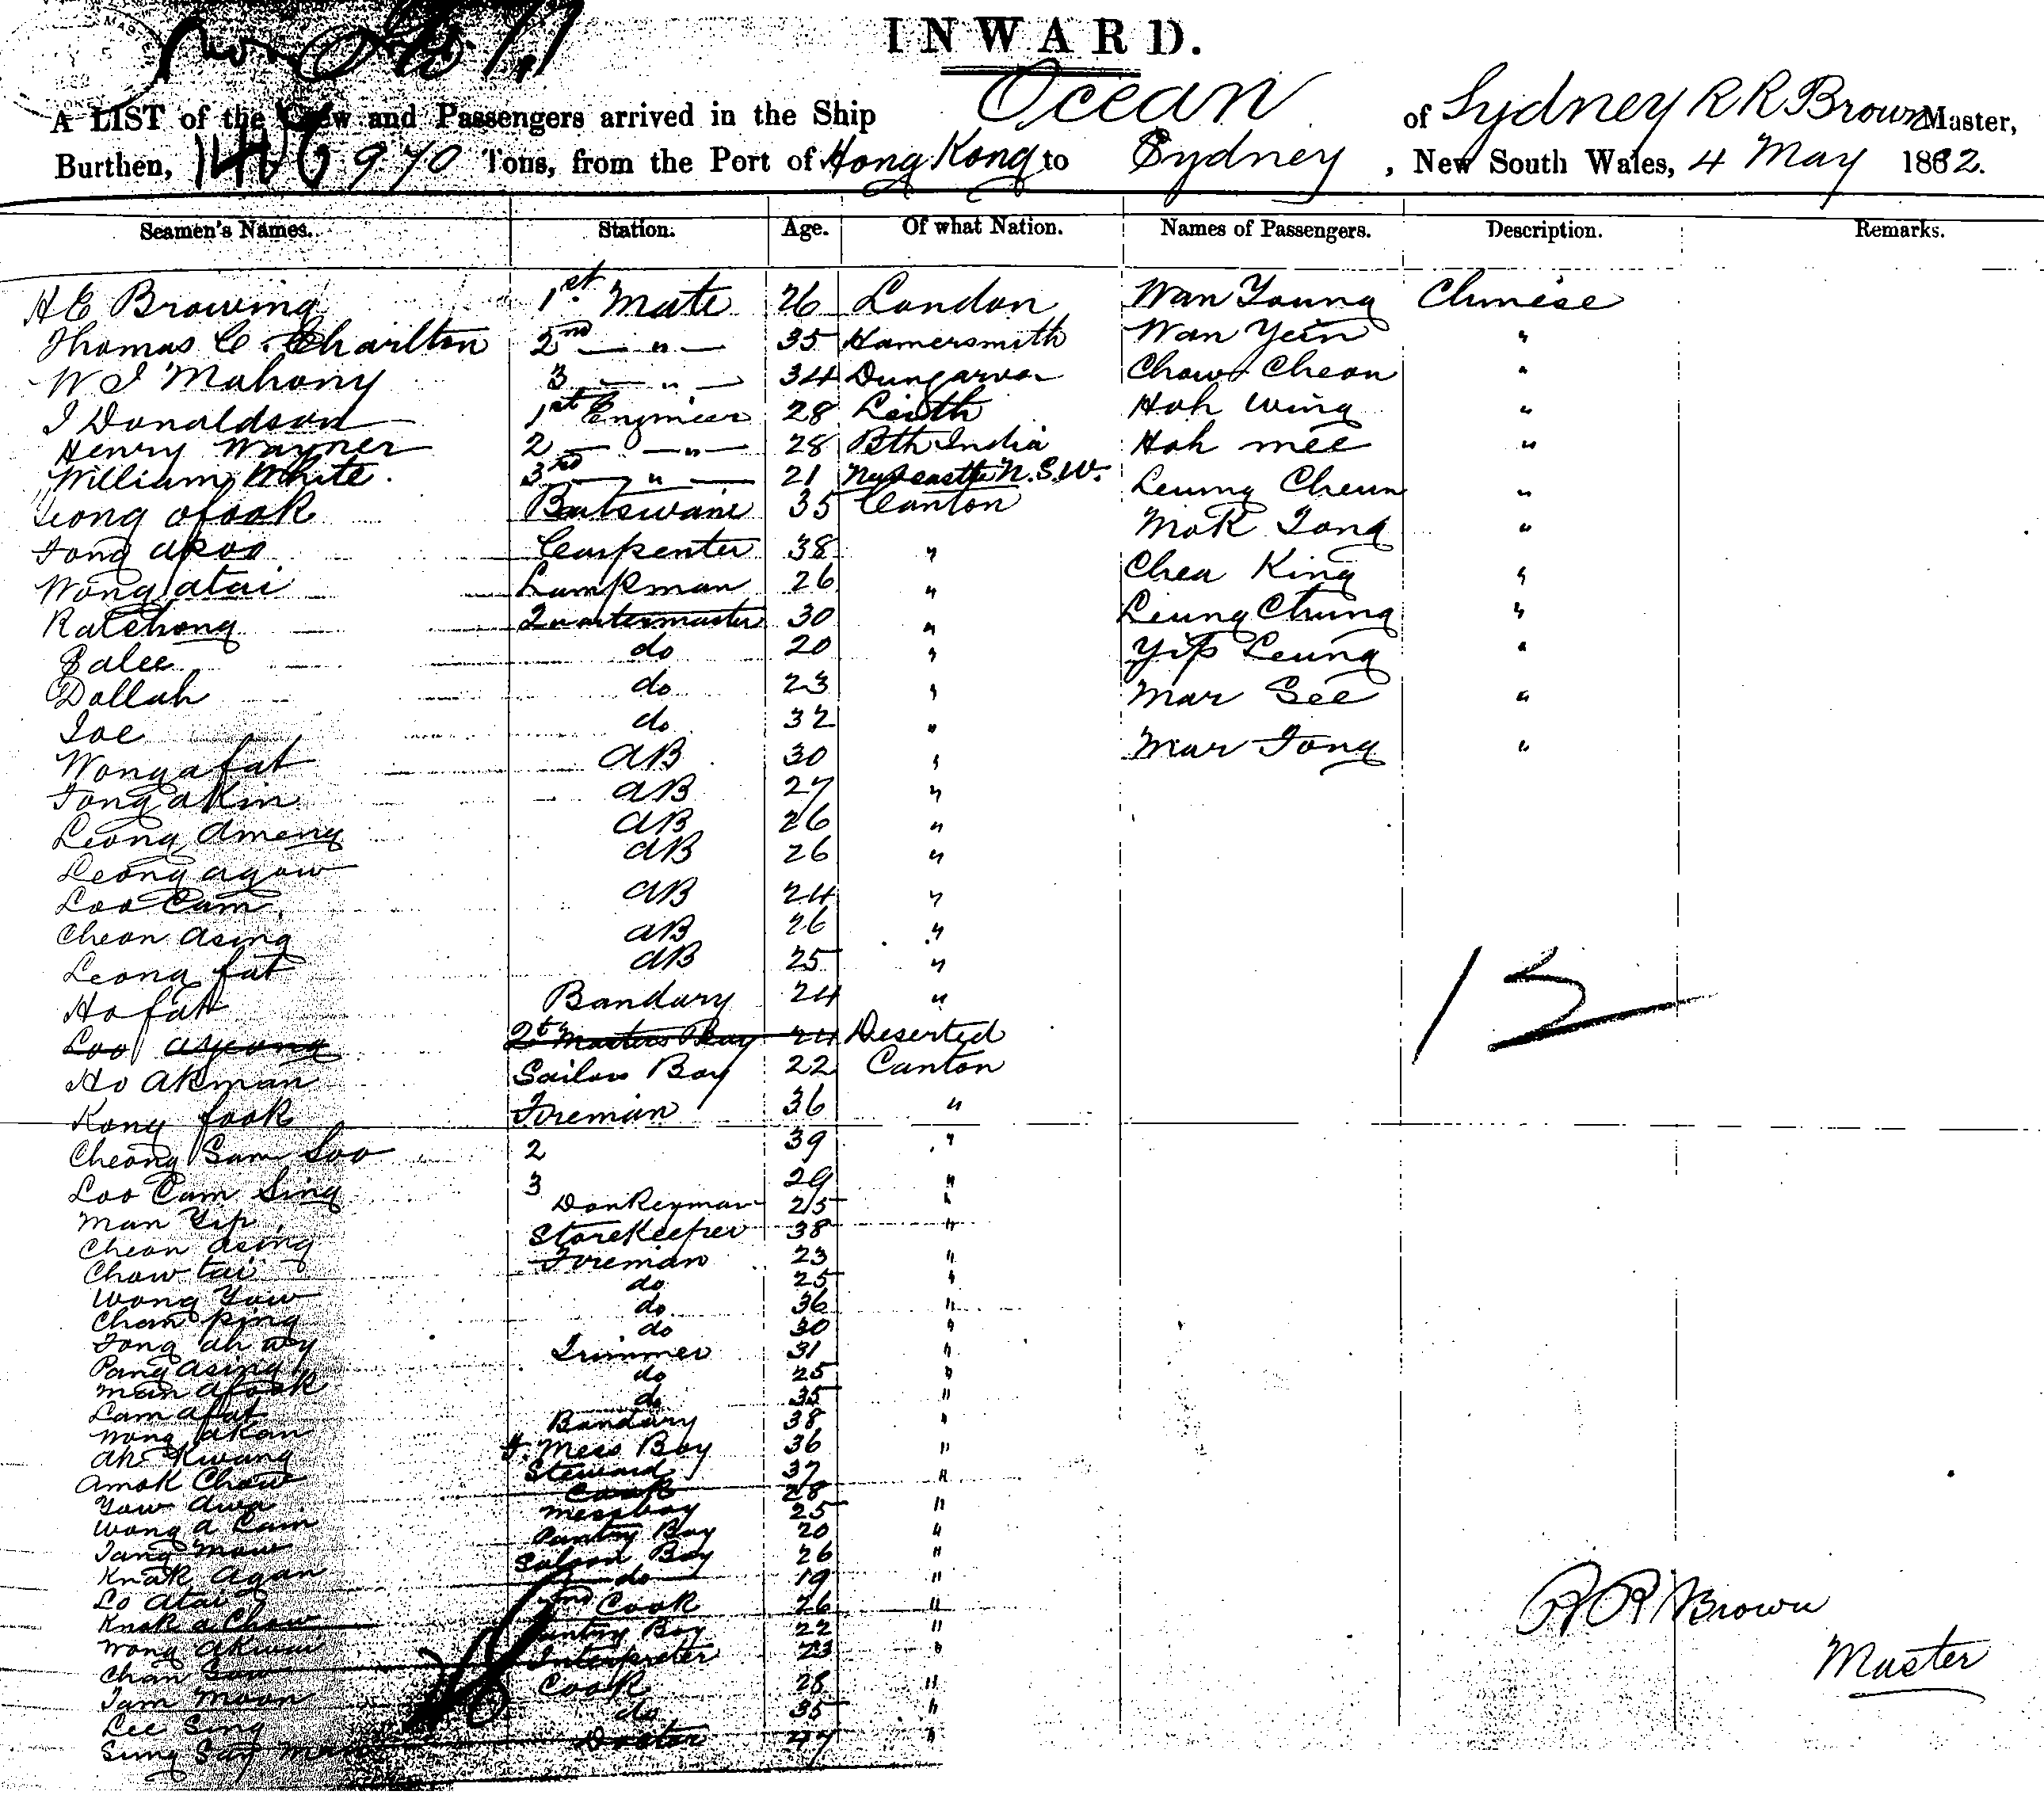 INWARD.
A LIST of the Crew and Passengers arrived in the Ship Ocean of Sydney R R Brown Master,
Burthen, 970 Tons, from the Port of Hong Kong to Sydney, New South Wales, 4 May 1882.
Seamen's Names. Station. Age. Of what Nation. Names of Passengers. Description. Remarks.
H E Browing 1st Mate 26 London Wan Young Chinese
Thomas C. Charlton 2nd — " — 35 Hamersmith Wan Yein "
W J Mahony 3 — " — 34 Dungarvan Chow Cheon "
J Donaldson 1st Engineer 28 Leith Hoh Wing "
Henry Wayner 2 — " — 28 Bth India Hoh mee "
William White. 3rd — " — 21 Newcastle N.S.W. Leung Cheun "
Leong afook Batswane 35 Canton Mok Tong "
Tong akoo Carpenter 38 " Chea King "
Wong atai Lampman 26 " Leung Chung "
Katchong Quartermaster 30 " Yip Leung "
Salee do 20 " Mar See "
Dollah do 23 " Mar Tong "
Joe do 32 "
Wong afat AB 30 "
Tong akin AB 27 "
Leong Ameng AB 26 "
Leong agow AB 26 "
Loo Cam AB 24 "
Cheon Asing AB 26 "
Leong fat AB 25 "
Ho fat Bandary 24 "
Loo ayeong 2 Masters Boy 24 Deserted
Ho Akman Sailors Boy 22 Canton
Kong fook Fireman 36 "
Cheong Sam Loo 2 39 "
Loo Cam Sing 3 29 "
Man Yip Donkeyman 25 "
Cheon Asing Storekeeper 38 "
Chow tai Fireman 23 "
Wong Yow do 25 "
Chan ping do 36 "
Tong ah wy do 30 "
Pang asing Trimmer 31 "
Man afook do 25 "
Lam afat do 35 "
Wong akan Bandary 38 "
Ah Kwang F. Mess Boy 36 "
Amok Chow Steward 37 "
Yow Awa Cook 28
Wong a Cam messboy 25 "
Tang Mow Pantry Boy 20 "
Knok Agan Saloon Boy 26 "
Lo Atai do 19 "
Knok a Chow 2nd Cook 26 "
Wong Akwai Pantry Boy 22 "
Chan Sow Interpreter 23 "
Tam Moon Cook 28 "
Lee Sing do 35 "
Sung Say Doctor 47 "
13
R R Brown
Master